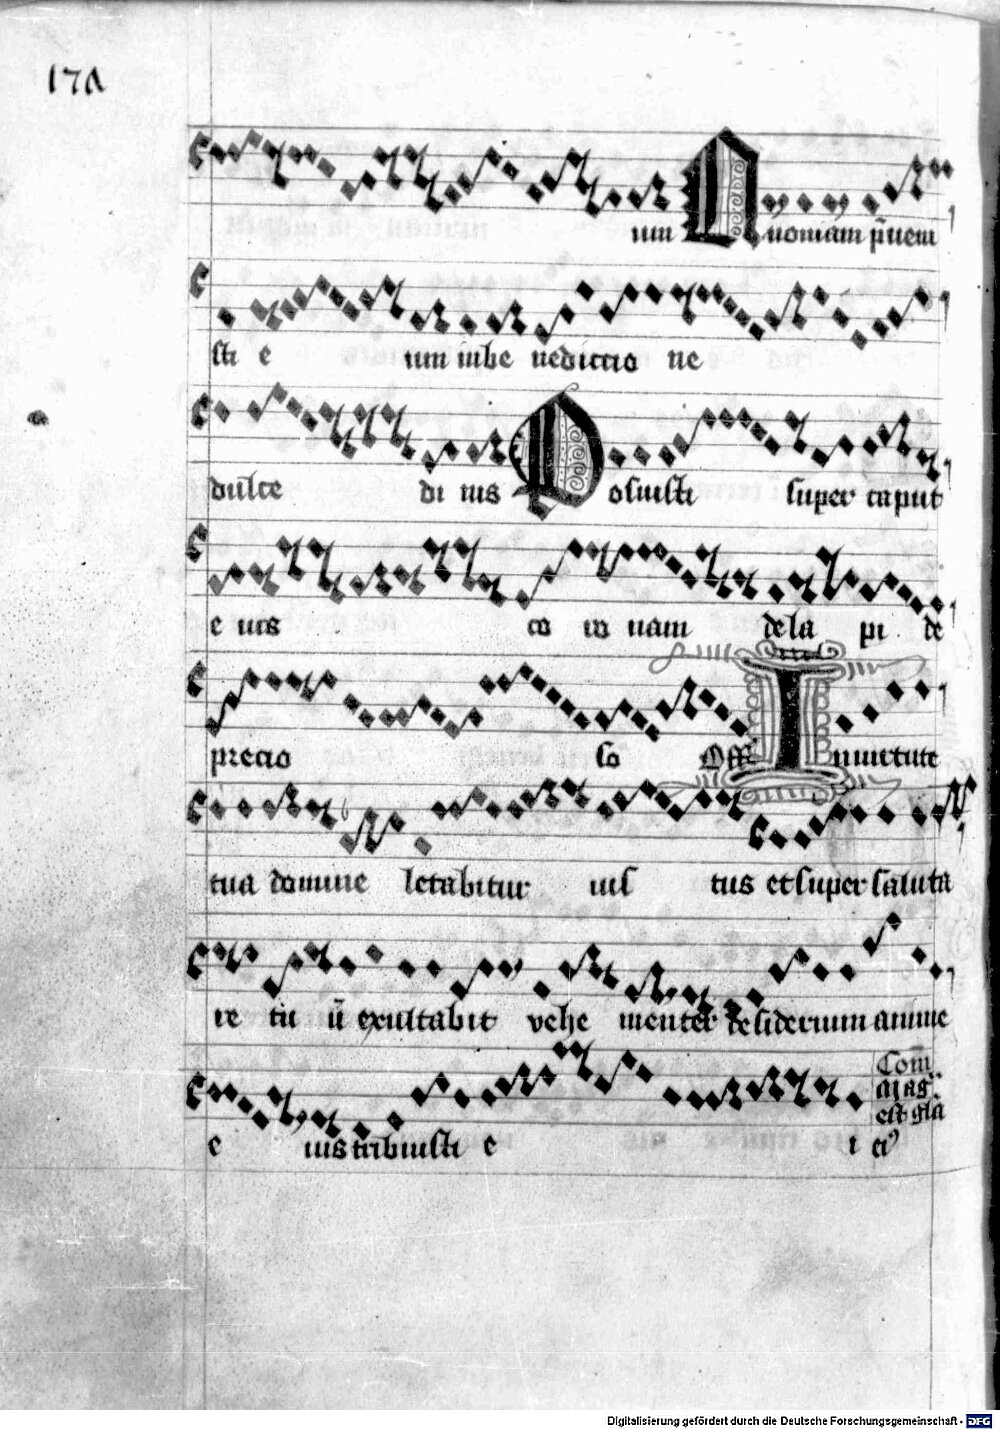 um Quoniam p̄ueni
sti e um in be nedictio ne
dulce di nis Posuisti super caput
e ius co ro nam de la pi de
precio so Off In uirtute
tua domine letabitur ius tus et super saluta
re tu ū exultabit vehe menter desiderium anime
e ius tribuisti e i
Com̄
est glā
Digitalisierung gefördert durch die Deutsche Forschungsgemeinschaft - DFG